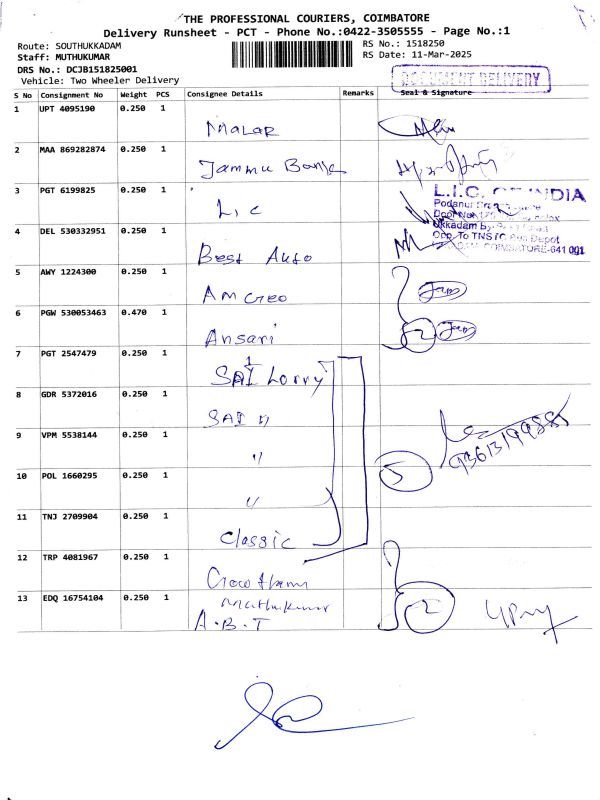 THE PROFESSIONAL COURIERS, COIMBATORE
Delivery Runsheet - PCT - Phone No.:0422-3505555 - Page No.:1
Route: SOUTHUKKADAM RS No.: 1518250
Staff: MUTHUKUMAR RS Date: 11-Mar-2025
DRS No.: DCJB151825001
DOCUMENT DELIVERY
Vehicle: Two Wheeler Delivery
S No Consignment No Weight PCS Consignee Details Remarks Seal & Signature
1 UPT 4095190 0.250 1
Malar
2 MAA 869282874 0.250 1
Jammu Bank
3 PGT 6199825 0.250 1
L.I.C. OF INDIA
Lic
4 DEL 530332951 0.250 1
Opp. To TNSTC Bus Depot
COIMBATORE-641 001
Best Auto
5 AWY 1224300 0.250 1
Am Creo
6 PGW 530053463 0.470 1
2
Ansari
7 PGT 2547479 0.250 1
SAI Lorry
8 GDR 5372016 0.250 1
SAI "
9 VPM 5538144 0.250 1
"
10 POL 1660295 0.250 1
5
"
11 TNJ 2709904 0.250 1
Classic
12 TRP 4081967 0.250 1
Gowtham
13 EDQ 16754104 0.250 1
Muthukumar
2
A.B.T